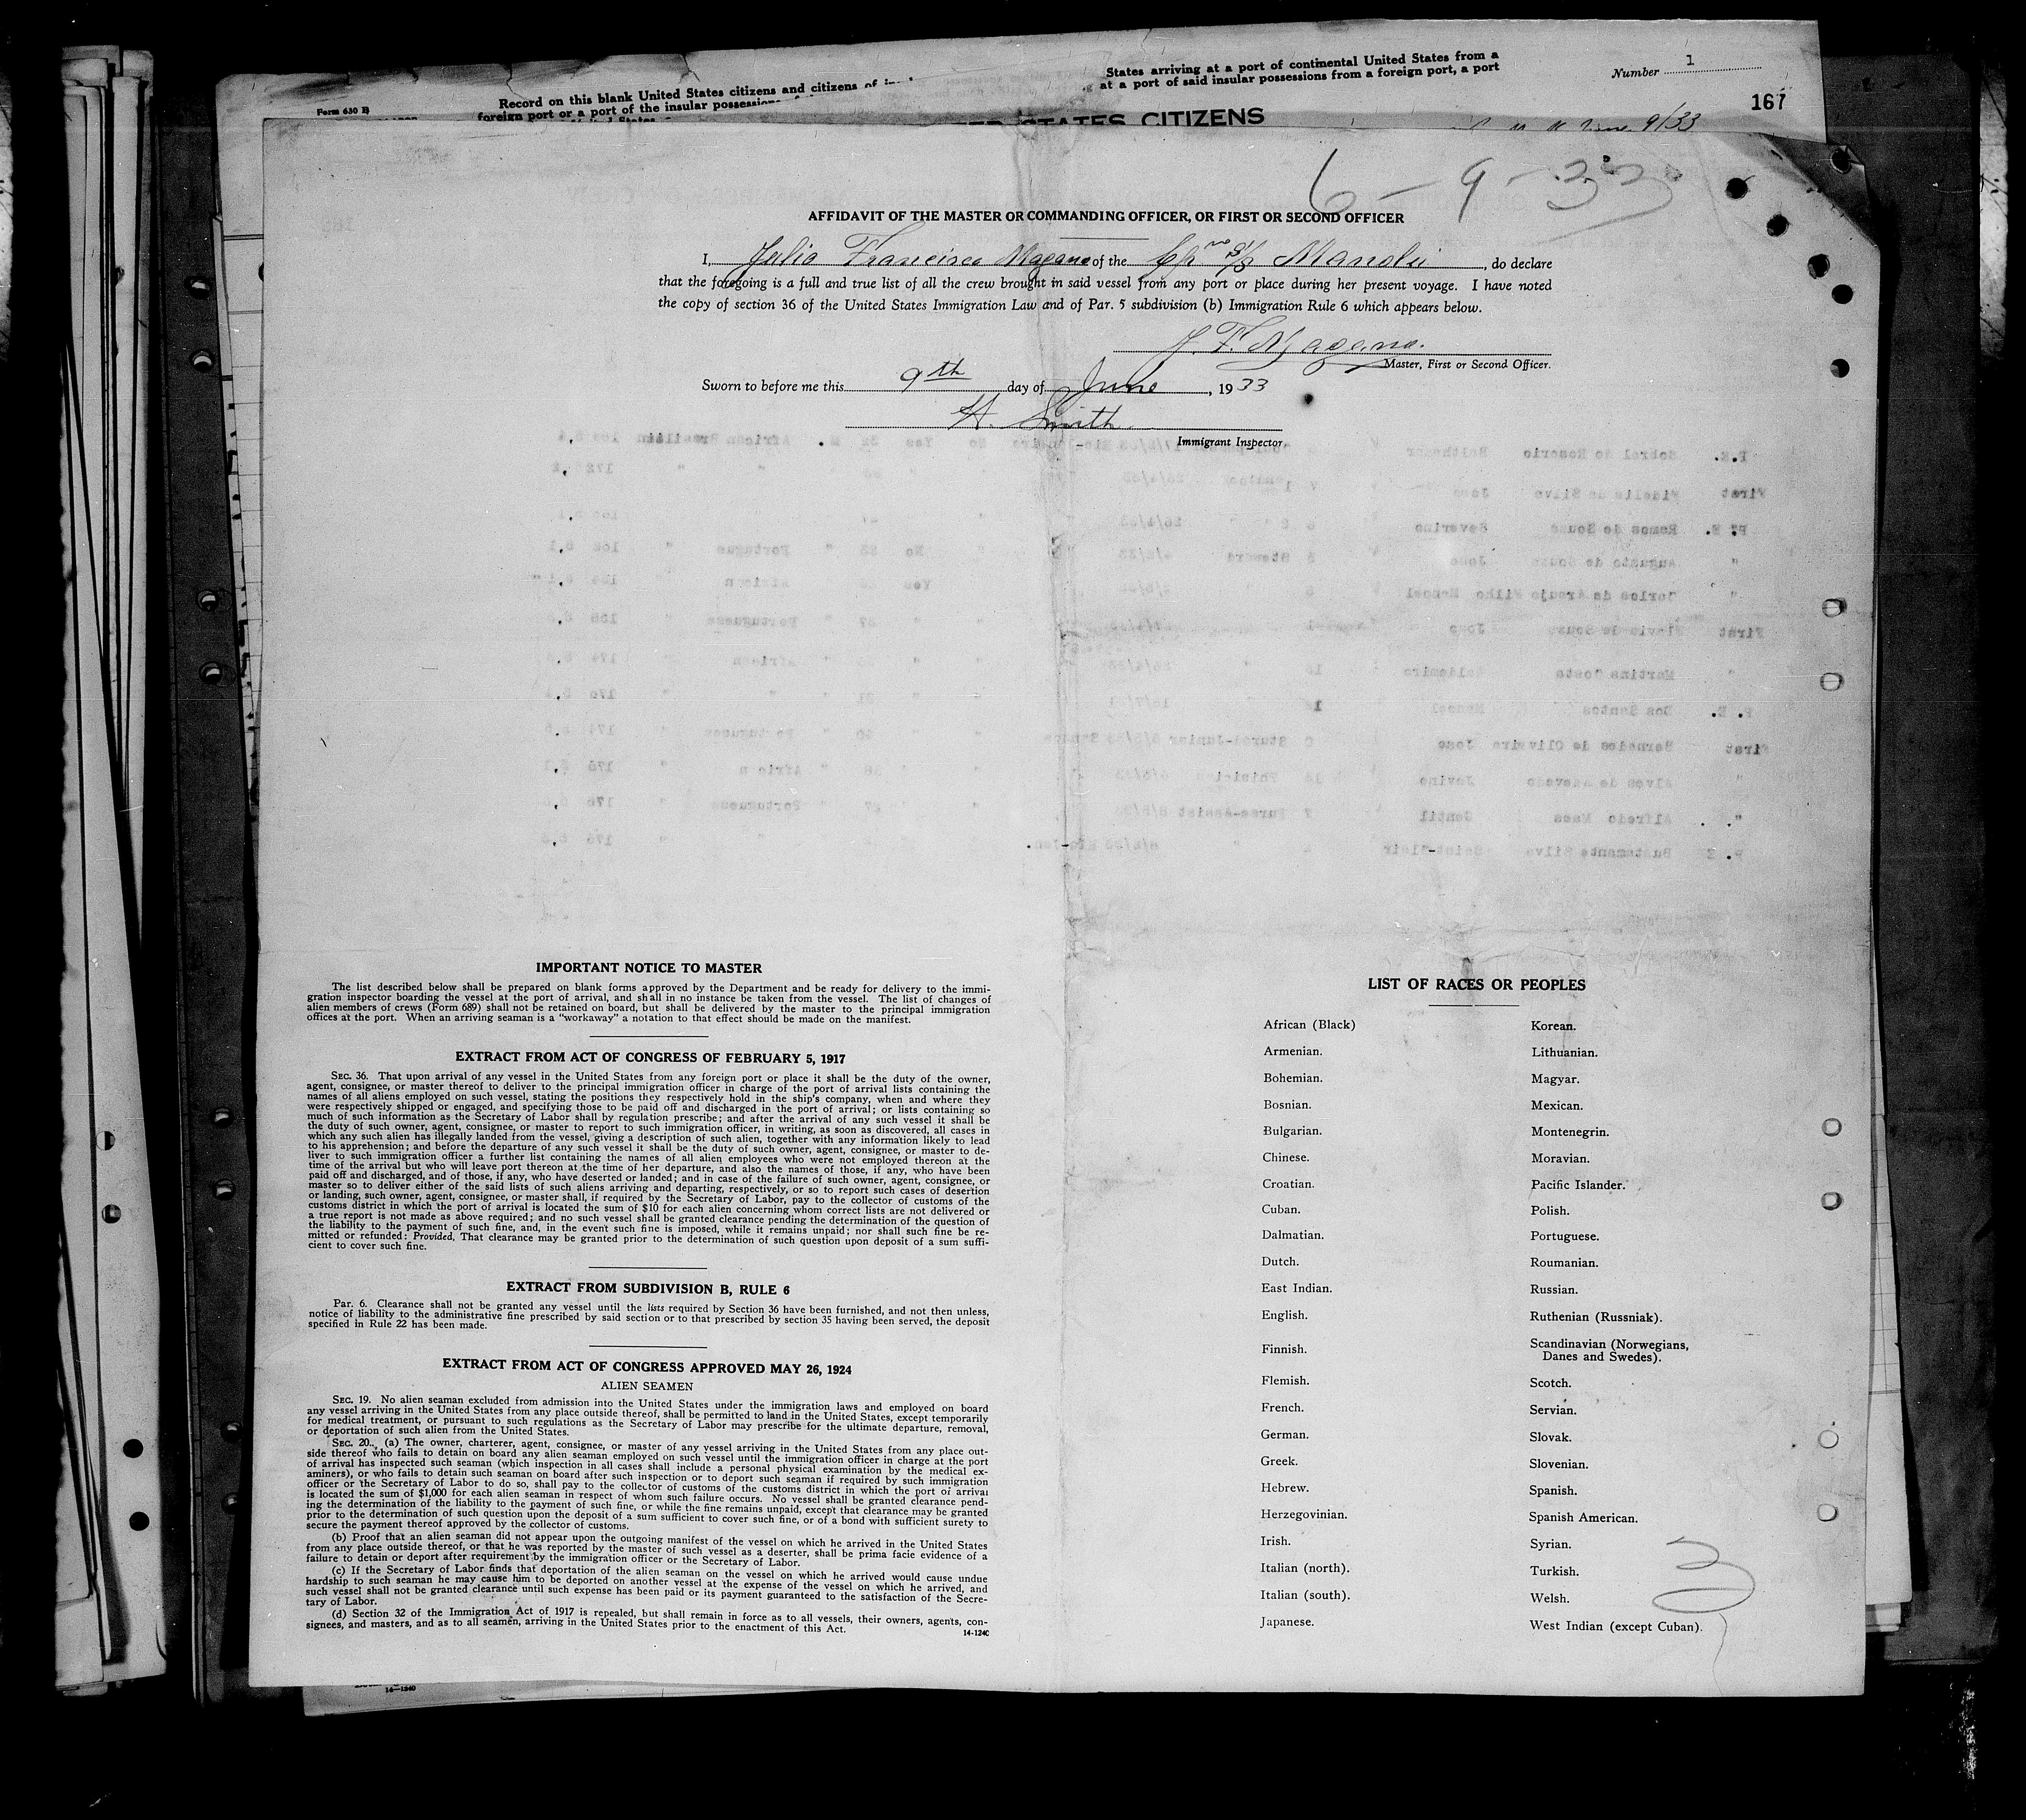 Form 630 B
Record on this blank United States citizens and citizens of
foreign port or a port of the insular possessions
States arriving at a port of continental United States from a
at a port of said insular possessions from a foreign port, a port
Number 1
167
STATES CITIZENS
9/33
6-9-33
AFFIDAVIT OF THE MASTER OR COMMANDING OFFICER, OR FIRST OR SECOND OFFICER
I, Julio Francisco Magano of the S/S Mandu, do declare
that the foregoing is a full and true list of all the crew brought in said vessel from any port or place during her present voyage. I have noted
the copy of section 36 of the United States Immigration Law and of Par. 5 subdivision (b) Immigration Rule 6 which appears below.
J. F. Magano.
Master, First or Second Officer.
Sworn to before me this 9th day of June, 1933
H. Smith
Immigrant Inspector
IMPORTANT NOTICE TO MASTER
The list described below shall be prepared on blank forms approved by the Department and be ready for delivery to the immi-
gration inspector boarding the vessel at the port of arrival, and shall in no instance be taken from the vessel. The list of changes of
alien members of crews (Form 689) shall not be retained on board, but shall be delivered by the master to the principal immigration
offices at the port. When an arriving seaman is a "workaway" a notation to that effect should be made on the manifest.
EXTRACT FROM ACT OF CONGRESS OF FEBRUARY 5, 1917
SEC. 36. That upon arrival of any vessel in the United States from any foreign port or place it shall be the duty of the owner,
agent, consignee, or master thereof to deliver to the principal immigration officer in charge of the port of arrival lists containing the
names of all aliens employed on such vessel, stating the positions they respectively hold in the ship's company, when and where they
were respectively shipped or engaged, and specifying those to be paid off and discharged in the port of arrival; or lists containing so
much of such information as the Secretary of Labor shall by regulation prescribe; and after the arrival of any such vessel it shall be
the duty of such owner, agent, consignee, or master to report to such immigration officer, in writing, as soon as discovered, all cases in
which any such alien has illegally landed from the vessel, giving a description of such alien, together with any information likely to lead
to his apprehension; and before the departure of any such vessel it shall be the duty of such owner, agent, consignee, or master to de-
liver to such immigration officer a further list containing the names of all alien employees who were not employed thereon at the
time of the arrival but who will leave port thereon at the time of her departure, and also the names of those, if any, who have been
paid off and discharged, and of those, if any, who have deserted or landed; and in case of the failure of such owner, agent, consignee, or
master so to deliver either of the said lists of such aliens arriving and departing, respectively, or so to report such cases of desertion
or landing, such owner, agent, consignee, or master shall, if required by the Secretary of Labor, pay to the collector of customs of the
customs district in which the port of arrival is located the sum of $10 for each alien concerning whom correct lists are not delivered or
a true report is not made as above required; and no such vessel shall be granted clearance pending the determination of the question of
the liability to the payment of such fine, and, in the event such fine is imposed, while it remains unpaid; nor shall such fine be re-
mitted or refunded: Provided, That clearance may be granted prior to the determination of such question upon deposit of a sum suffi-
cient to cover such fine.
EXTRACT FROM SUBDIVISION B, RULE 6
Par. 6. Clearance shall not be granted any vessel until the lists required by Section 36 have been furnished, and not then unless,
notice of liability to the administrative fine prescribed by said section or to that prescribed by section 35 having been served, the deposit
specified in Rule 22 has been made.
EXTRACT FROM ACT OF CONGRESS APPROVED MAY 26, 1924
ALIEN SEAMEN
SEC. 19. No alien seaman excluded from admission into the United States under the immigration laws and employed on board
any vessel arriving in the United States from any place outside thereof, shall be permitted to land in the United States, except temporarily
for medical treatment, or pursuant to such regulations as the Secretary of Labor may prescribe for the ultimate departure, removal,
or deportation of such alien from the United States.
SEC. 20. (a) The owner, charterer, agent, consignee, or master of any vessel arriving in the United States from any place out-
side thereof who fails to detain on board any alien seaman employed on such vessel until the immigration officer in charge at the port
of arrival has inspected such seaman (which inspection in all cases shall include a personal physical examination by the medical ex-
aminers), or who fails to detain such seaman on board after such inspection or to deport such seaman if required by such immigration
officer or the Secretary of Labor to do so, shall pay to the collector of customs of the customs district in which the port of arrival
is located the sum of $1,000 for each alien seaman in respect of whom such failure occurs. No vessel shall be granted clearance pend-
ing the determination of the liability to the payment of such fine, or while the fine remains unpaid, except that clearance may be granted
prior to the determination of such question upon the deposit of a sum sufficient to cover such fine, or of a bond with sufficient surety to
secure the payment thereof approved by the collector of customs.
(b) Proof that an alien seaman did not appear upon the outgoing manifest of the vessel on which he arrived in the United States
from any place outside thereof, or that he was reported by the master of such vessel as a deserter, shall be prima facie evidence of a
failure to detain or deport after requirement by the immigration officer or the Secretary of Labor.
(c) If the Secretary of Labor finds that deportation of the alien seaman on the vessel on which he arrived would cause undue
hardship to such seaman he may cause him to be deported on another vessel at the expense of the vessel on which he arrived, and
such vessel shall not be granted clearance until such expense has been paid or its payment guaranteed to the satisfaction of the Secre-
tary of Labor.
(d) Section 32 of the Immigration Act of 1917 is repealed, but shall remain in force as to all vessels, their owners, agents, con-
signees, and masters, and as to all seamen, arriving in the United States prior to the enactment of this Act.
14-124C
14-1240
LIST OF RACES OR PEOPLES
African (Black)
Armenian.
Bohemian.
Bosnian.
Bulgarian.
Chinese.
Croatian.
Cuban.
Dalmatian.
Dutch.
East Indian.
English.
Finnish.
Flemish.
French.
German.
Greek.
Hebrew.
Herzegovinian.
Irish.
Italian (north).
Italian (south).
Japanese.
Korean.
Lithuanian.
Magyar.
Mexican.
Montenegrin.
Moravian.
Pacific Islander.
Polish.
Portuguese.
Roumanian.
Russian.
Ruthenian (Russniak).
Scandinavian (Norwegians,
Danes and Swedes).
Scotch.
Servian.
Slovak.
Slovenian.
Spanish.
Spanish American.
Syrian.
Turkish.
Welsh.
West Indian (except Cuban).